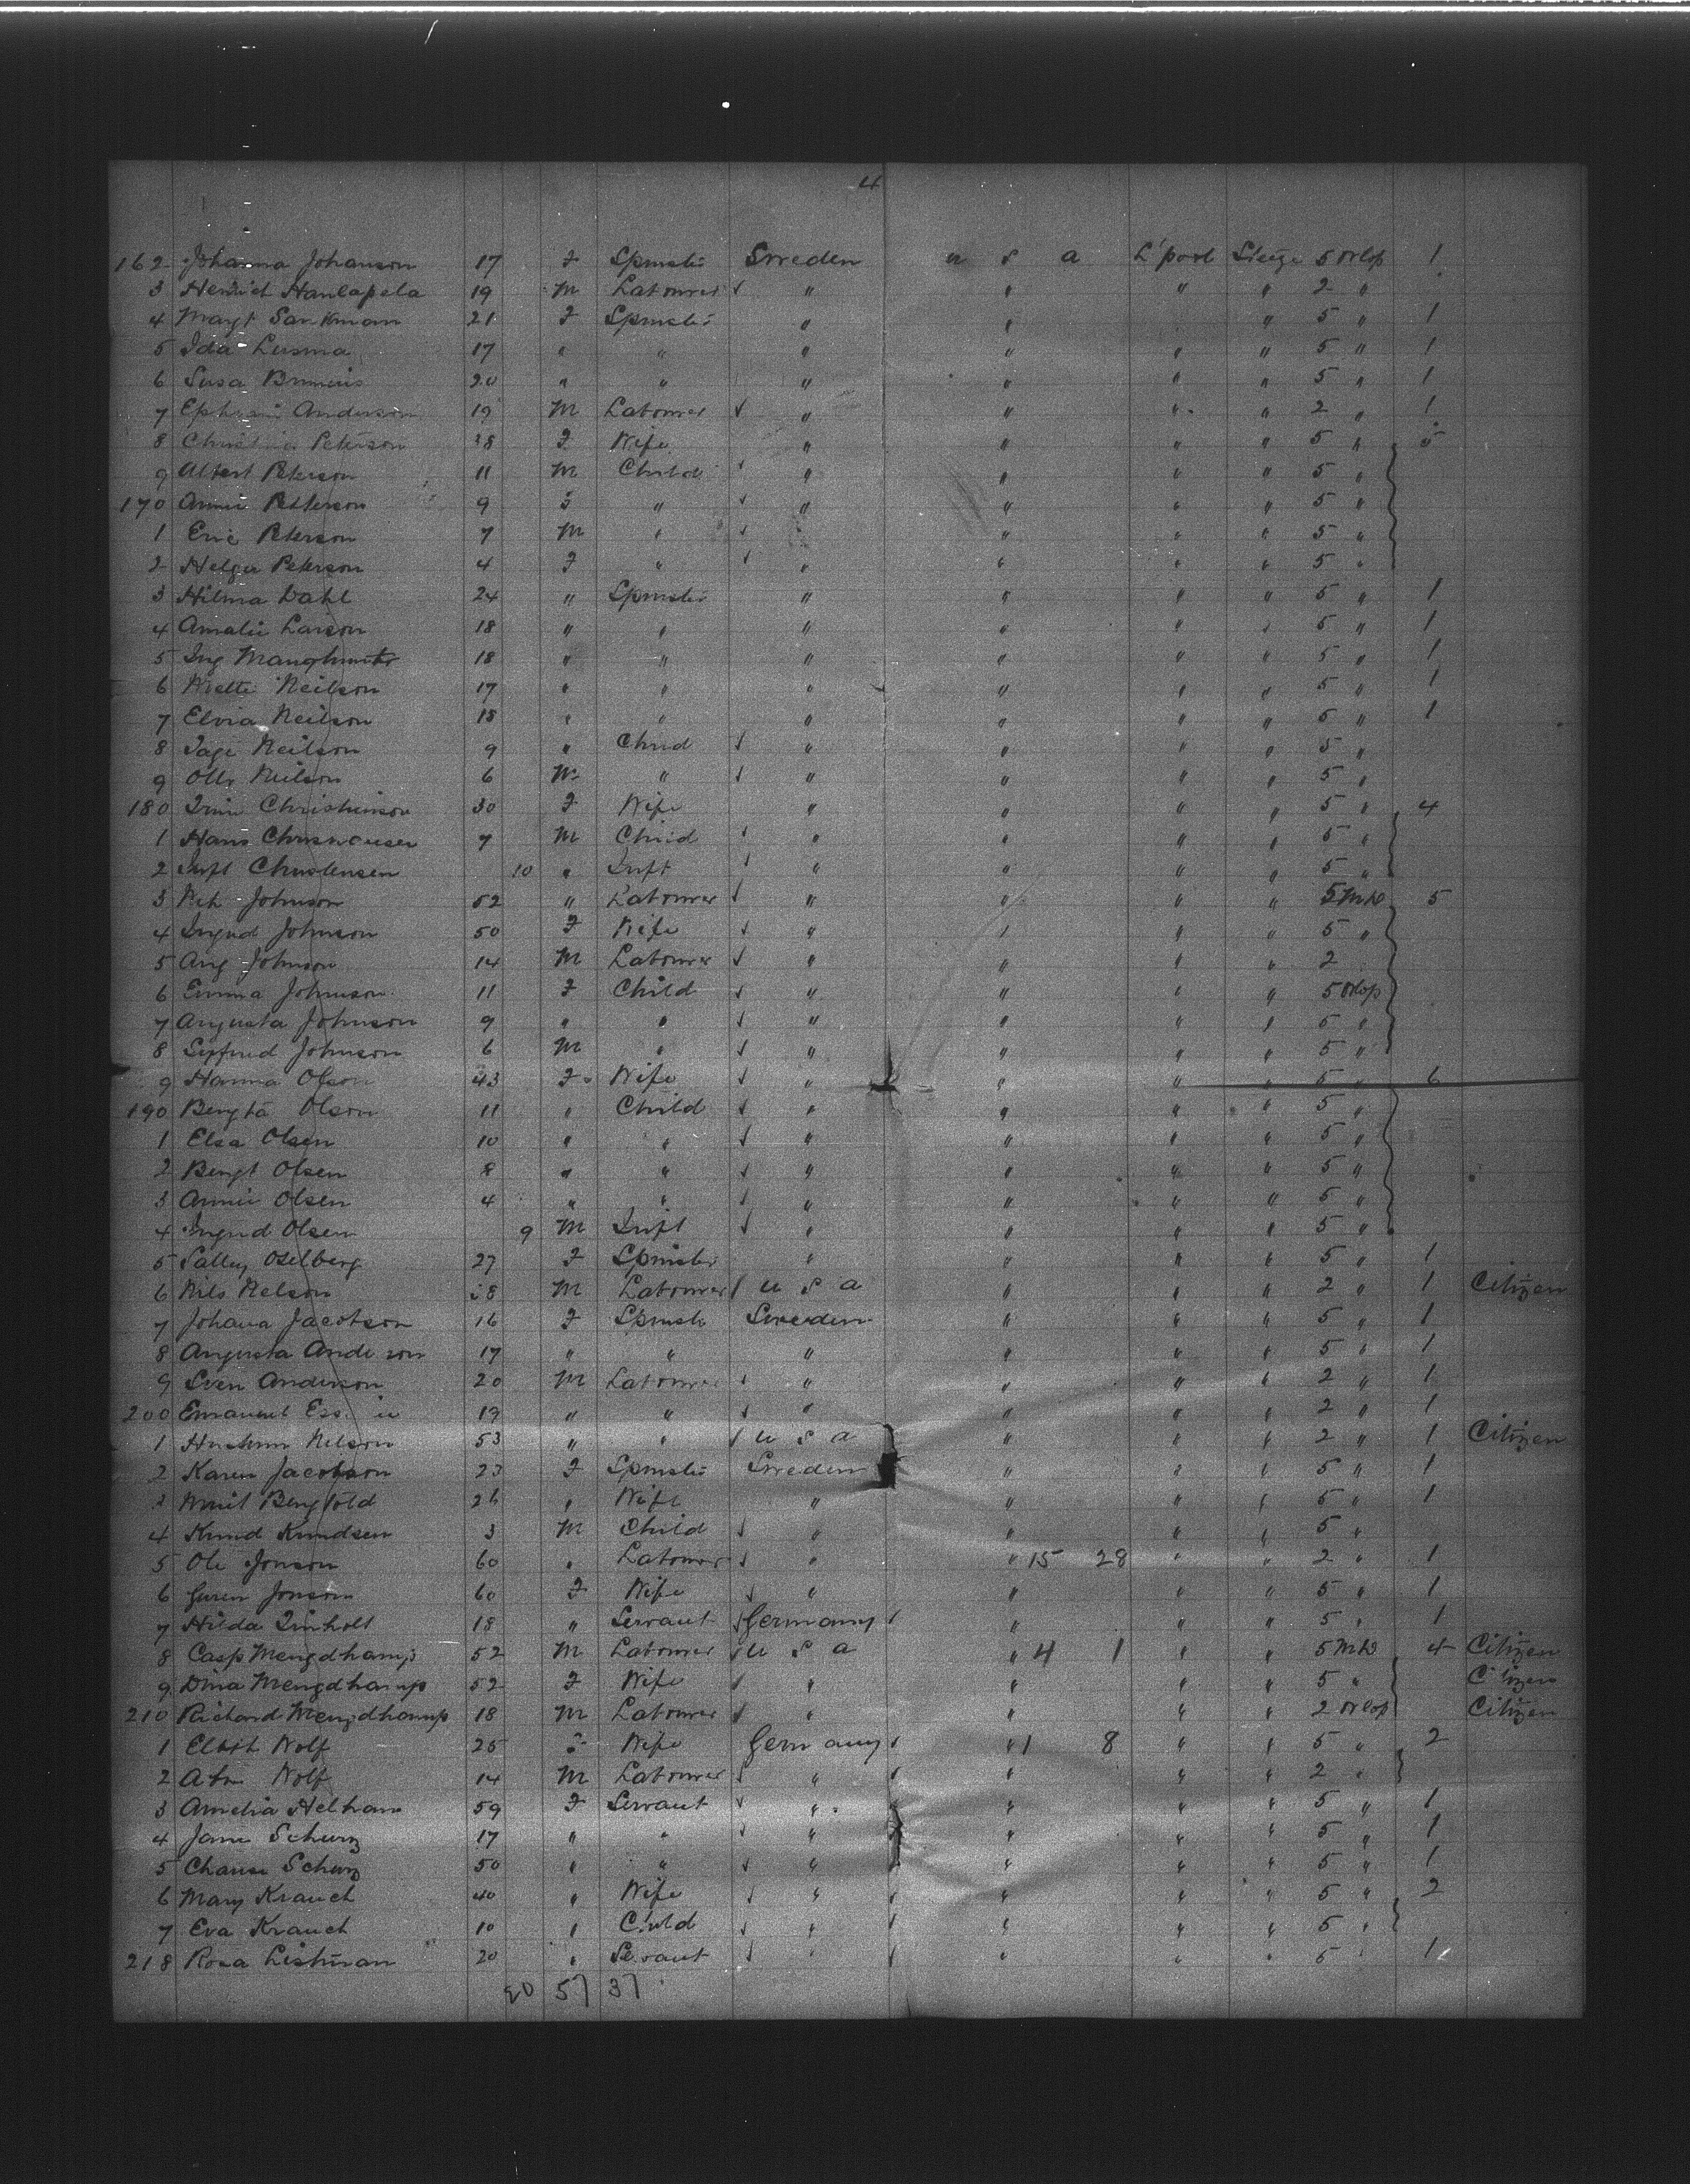 4
162 Johanna Johanson 17 F Spinster Sweden U S A L'pool Steege 5 Orlop 1
3 19 M Labourer √ " " " " 2 "
4 Margt Sankman 21 F Spinster " " " 5 " 1
5 Ida Lusma 17 " " " " " " 5 " 1
6 Susa 20 " " " " " " 5 " 1
7 Ephraim Anderson 19 M Labourer √ " " " " 2 " 1
8 Christina Peterson 38 F Wife " " " " 5 " 5
9 Albert Peterson 11 M Child √ " " " " 5 "
170 Annie Petterson 9 F " √ " " " " 5 "
1 Eric Peterson 7 M " √ " " " " 5 "
2 Helga Peterson 4 F " √ " " " " 5 "
3 Hilma Dahl 24 " Spinster " " " " 5 " 1
4 Amalie Larson 18 " " " " " " 5 " 1
5 Ing 18 " " " " " " 5 " 1
6 Neilson 17 " " " " " " 5 " 1
7 Elvia Neilson 18 " " " " " " 5 " 1
8 Tage Neilson 9 " Child √ " " " " 5 "
9 Neilson 6 M " √ " " " " 5 "
180 Christinson 30 F Wife " " " " 5 " 4
1 Hans 7 M Child √ " " " " 5 "
2 Inft Christensen 10 " Inft √ " " " " 5 "
3 Johnson 52 " Labourer √ " " " " 5 5
4 Ingrid Johnson 50 F Wife √ " " " " 5 "
5 Aug Johnson 14 M Labourer √ " " " " 2
6 Emma Johnson 11 F Child √ " " " " 5 Orlop
7 Augusta Johnson 9 " " √ " " " " 5 "
8 Sigfrid Johnson 6 M " √ " " " " 5 "
9 Hanna Olson 43 F Wife √ " " " " 5 " 6
190 Bengta Olson 11 " Child √ " " " " 5 "
1 Elsa Olsen 10 " " √ " " " " 5 "
2 Bengt Olsen 8 " " √ " " " " 5 "
3 Annie Olsen 4 " " √ " " " " 5 "
4 Ingrid Olsen 9 M Inft √ " " " " 5 "
5 Salley Oselberg 27 F Spinster " " " " 5 " 1
6 Nils Nelson 28 M Labourer √ U S A " " " 2 " 1 Citizen
7 Johana Jacobson 16 F Spinster Sweden " " " 5 " 1
8 Augusta Anderson 17 " " " " " " 5 " 1
9 Sven Anderson 20 M Labourer √ " " " " 2 " 1
200 Emanuel 19 " " √ " " " " 2 " 1
1 Nilson 53 " " √ U S A " " " 2 " 1 Citizen
2 Karen Jacobson 23 F Spinster Sweden " " " 5 " 1
3 26 " Wife " " " " 5 " 1
4 Knud Knudsen 3 M Child √ " " " " 5 "
5 Ole Jonson 60 " Labourer √ " " 15 28 " " 2 " 1
6 Guren Jonson 60 F Wife √ " " " " 5 " 1
7 Hilda 18 " Servant √ Germany " " " 5 " 1
8 Casp Mengdhamp 52 M Labourer √ U S A " 4 1 " " 5 4 Citizen
9 Dina Mengdhamp 52 F Wife √ " " " " 5 " Citizen
210 Richard Mengdhamp 18 M Labourer √ " " " " 2 Orlop Citizen
1 Wolf 25 F Wife Germany " 1 8 " " 5 " 2
2 Wolf 14 M Labourer √ " " " " 2 "
3 Amelia 59 F Servant √ " " " " 5 " 1
4 Jane Schurz 17 " " √ " " " " 5 " 1
5 Schurz 50 " " √ " " " " 5 " 1
6 Mary Krauch 40 " Wife √ " " " " 5 " 2
7 Eva Krauch 10 " Child √ " " " " 5 "
218 Rosa Listman 20 " Servant √ " " " " 5 " 1
20 57 37